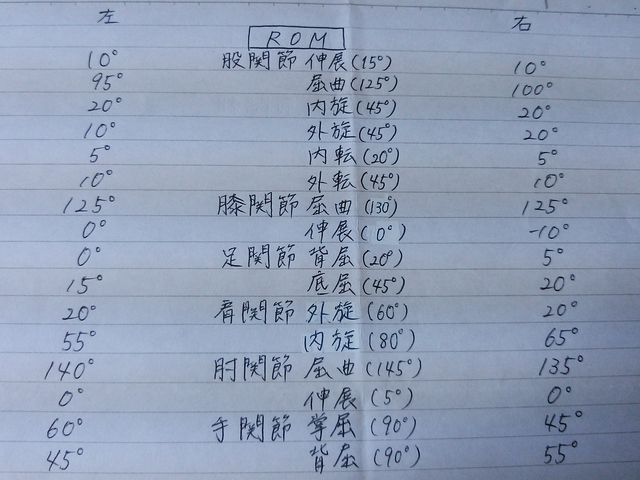 左 右
ROM
10° 股関節 伸展(15°) 10°
95° 屈曲(125°) 100°
20° 内旋(45°) 20°
10° 外旋(45°) 20°
5° 内転(20°) 5°
10° 外転(45°) 10°
125° 膝関節 屈曲(130°) 125°
0° 伸展(0°) -10°
0° 足関節 背屈(20°) 5°
15° 底屈(45°) 20°
20° 肩関節 外旋(60°) 20°
55° 内旋(80°) 65°
140° 肘関節 屈曲(145°) 135°
0° 伸展(5°) 0°
60° 手関節 掌屈(90°) 45°
45° 背屈(90°) 55°